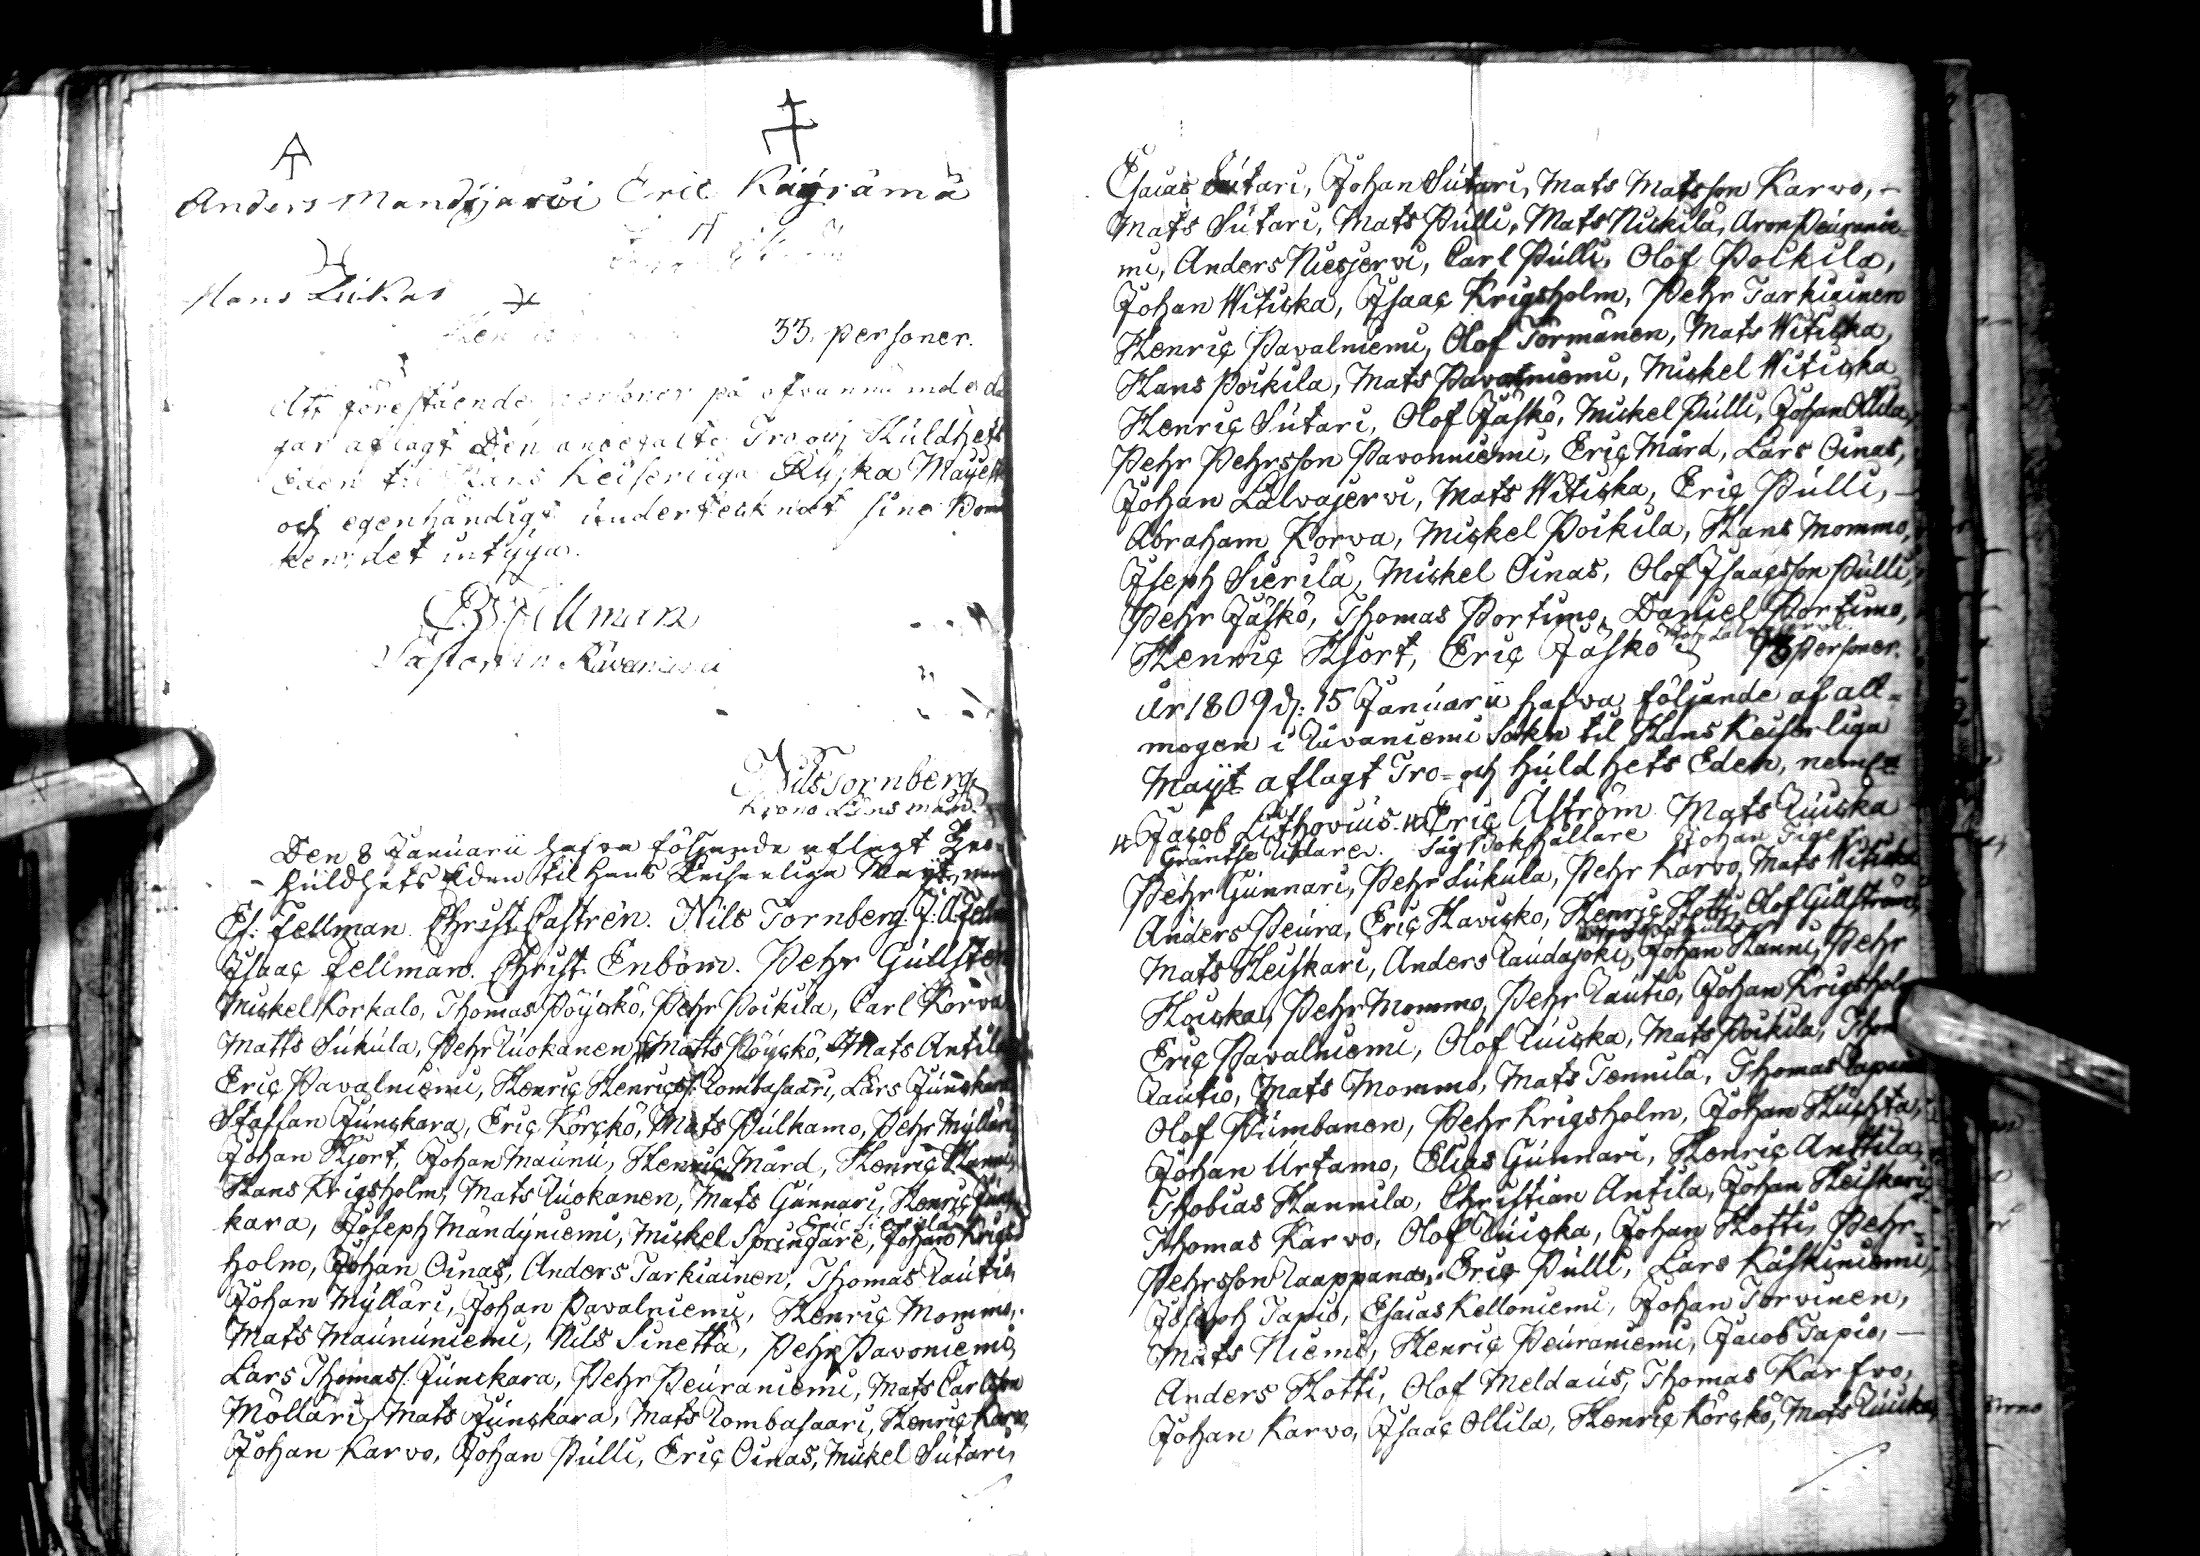 Anders Mandyjärvi Eric Käyrämä
Hans Lukas
33. personer.
Att förestående personer på ofvannämde da
gar aflagt Den anbefalte Tro och Huldhets
Eden til Hans Keiserliga Ryska Mayestt
och egenhändigt undertecknat sine Bomä
ken; det intyga.
Es. Fellman
Pastor in Råvaniemi
Nils Tornberg
Krono Länsman.
Den 8 Januarii hafva följande aflagt
Huldhets Eden til Hans Keiserliga Mayt,
Es. Fellman. Christ. Castrén. Nils Tornberg.
Isaac Fellman. Christ. Enbom. Pehr Gullsten
Mickel Korkalo, Thomas Pöyckö, Pehr Poikila, Carl Korva
Matts Sukula, Pehr Ruokanen, Matts Pöyckö, Mats Antila
Eric Pavalniemi, Henric Henricss. Rombasaari, Lars Junckara
Staffan Junckara, Eric Körckö, Mats Pulkamo, Pehr Mylläri
Johan Hjort, Johan Maunu, Henric Mård, Henric Hannu,
Hans Krigsholm, Mats Ruokanen, Mats Gunnari, Henric Junc
Eric Sierila
kara, Joseph Mändyniemi, Mickel Springare, Johan Krigs
holm, Johan Oinas, Anders Tarkiainen, Thomas Rautio,
Johan Mylläri, Johan Pavalniemi, Henric Mommo,
Mats Maununiemi, Nils Sinettä, Pehr Pavoniemi,
Lars Thomass. Junckara, Pehr Peuraniemi, Mats Carlsson
Möllari, Mats Junckara, Mats Rombasaari, Henric Karvo,
Johan Karvo, Johan Pulli, Eric Oinas, Mickel Sutari,
Esaias Sutari, Johan Sutari, Mats Matsson Karvo, –
Mats Sutari, Mats Pulli, Mats Nickilä, Aron Peuranie-
mi, Anders Niesjervi, Carl Pulli, Olof Poikila,
Johan Witicka, Isaac Krigsholm, Pehr Tarkiainen
Henric Pavalniemi, Olof Törmänen, Mats Witicka,
Hans Poikila, Mats Pavalniemi, Mickel Witicka
Henric Sutari, Olof Jäskö, Mickel Pulli, Johan Ollila,
Pehr Pehrsson Pavonniemi, Eric Mård, Lars Oinas,
Johan Lalvajervi, Mats Witicka, Eric Pulli, –
Abraham Korva, Mickel Poikila, Hans Mommo,
Iseph Sierilä, Mickel Oinas, Olof Isaacsson Pulli,
Pehr Jäskö, Thomas Portimo, Daniel Portimo,
Henric Hjort, Eric Jäskö personer.
År 1809 d: 15 Januarii hafva följande af all-
mogen i Råvaniemi Sokn til Hans Keiserliga
Mayt aflagt Tro- och Huldhets Eden, neml:
Jacob Lithovius. Eric Åström Mats Ruicka
Gräntse Ridare. Såg Bokhållare Johan
Pehr Gunnari, Pehr Sukula, Pehr Karvo, Mats Witicka
Anders Peura, Eric Havicko, Henric Hotti, Olof Gullström,
Mats Heiskari, Anders Raudajoki, Johan Hannu, Pehr
Hoicka, Pehr Mommo, Pehr Rautio, Johan Krigsholm
Eric Pavalniemi, Olof Ruicka, Mats Poikila, Thom
Rautio, Mats Mommo, Mats Tennilä, Thomas
Olof Pumbanen, Pehr Krigsholm, Johan Huchta,
Johan Urtamo, Elias Gunnari, Henric Anttila,
Thobias Hannila, Christian Antila, Johan Heiskari,
Thomas Karvo, Olof Ruicka, Johan Hotti, Pehr
Pehrsson Raappana, Eric Pulli, Lars Käskiniemi,
Joseph Tapio, Esaias Kelloniemi, Johan Torvinen,
Mats Niemi, Henric Peuraniemi, Jacob Tapio, –
Anders Hotti, Olof Meldaus, Thomas Karfvo,
Johan Karvo, Isaac Ollila, Henric Körckö, Mats Ruicka,